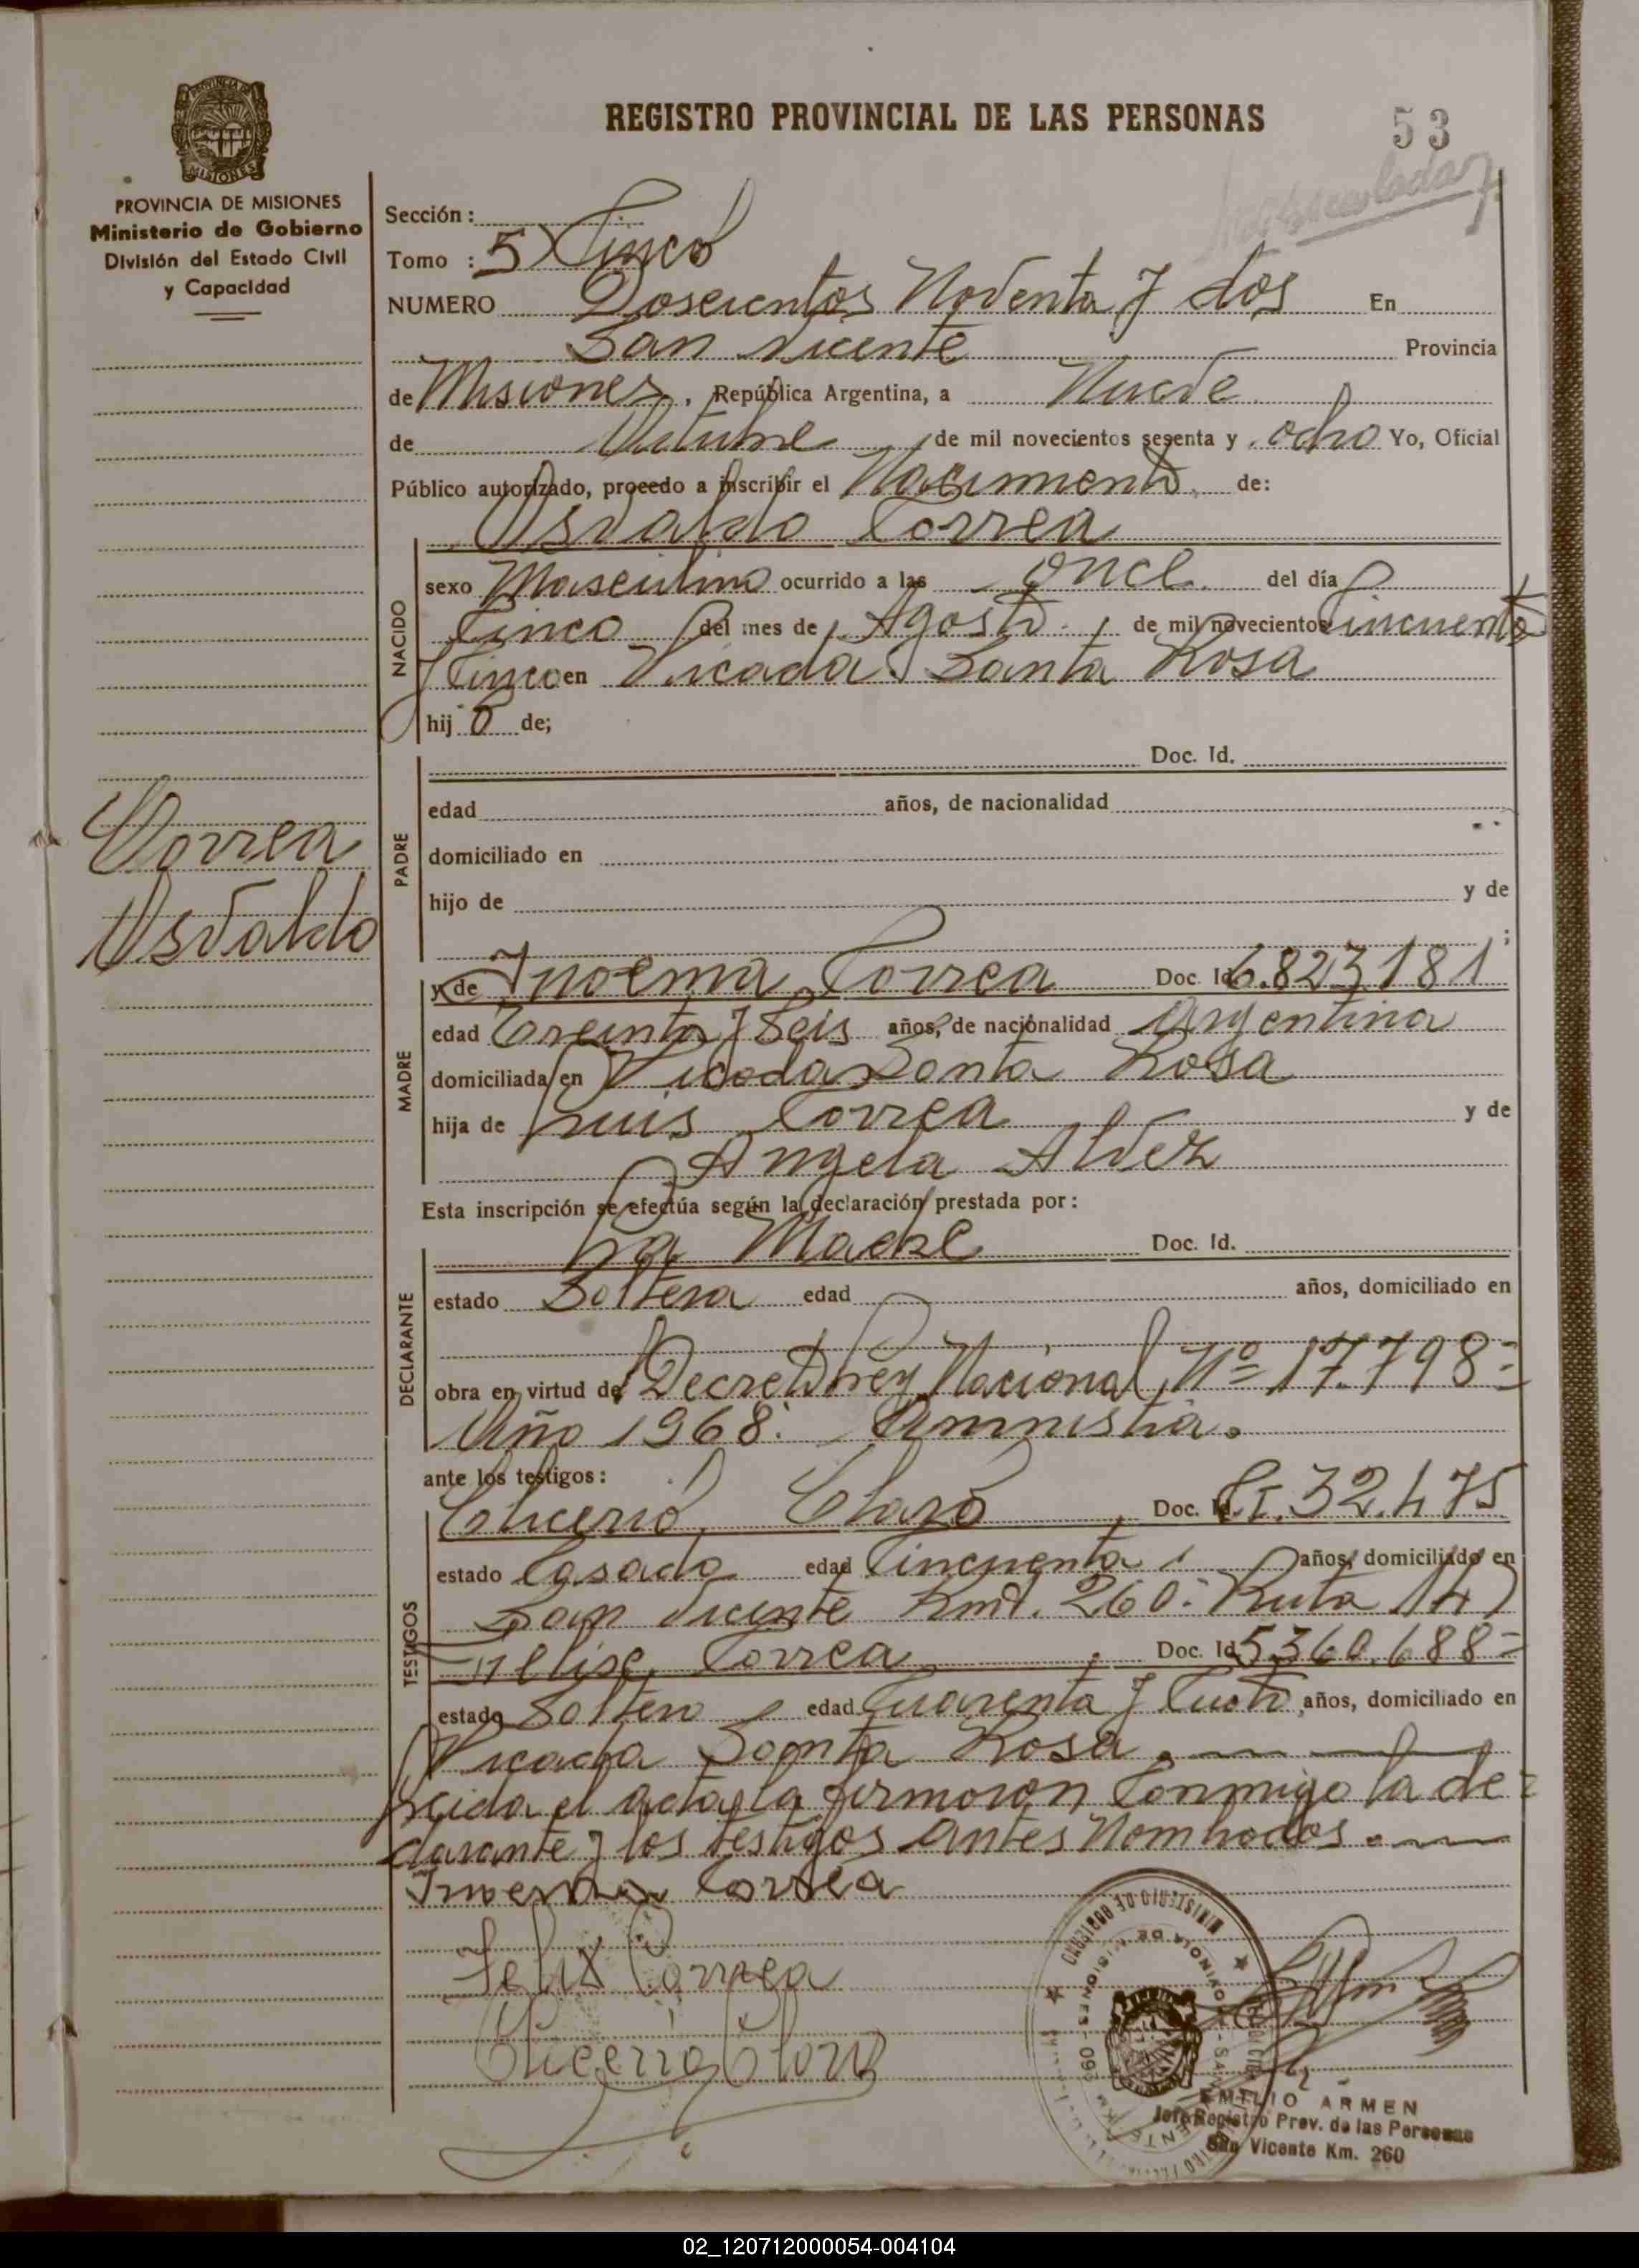 REGISTRO PROVINCIAL DE LAS PERSONAS
53
PROVINCIA DE MISIONES
Ministerio de Gobierno
División del Estado Civil
y Capacidad
Correa
Osvaldo
Sección:
Tomo : 5) Cinco
NUMERO Doscientos Noventa y dos En
San Vicente Provincia
de Misiones, República Argentina, a Nueve
de Octubre de mil novecientos sesenta y ocho Yo, Oficial
Público autorizado, procedo a inscribir el Nacimiento de:
Osvaldo Correa
NACIDO
sexo Masculino ocurrido a las once del día
Cinco del mes de Agosto de mil novecientos Cincuenta
y Cinco en Picada Santa Rosa
hij o de;
PADRE
Doc. Id.
edad años, de nacionalidad
domiciliado en
hijo de y de
;
MADRE
y de Inoema Correa Doc. Id 6.823.181
edad Treinta y Seis años, de nacionalidad Argentina
domiciliada en Picada Santa Rosa
hija de Luis Correa y de
Angela Alvez
Esta inscripción se efectúa según la declaración prestada por:
DECLARANTE
La Madre Doc. Id.
estado Soltera edad años, domiciliado en
obra en virtud de Decreto Ley Nacional Nº 17.798=
Año 1968. Amnistia.
ante los testigos:
TESTIGOS
Clicerio Claro Doc. Id C.I. 32.475
estado Casado edad Cincuenta años, domiciliado en
San Vicente Kmt. 260= Ruta 14)
Correa Doc. Id 5.360.688=
estado Soltero edad Cuarenta y Cuatro años, domiciliado en
Picada Santa Rosa.
Leida el acta, la firmaron Conmigo la de=
clarante y los testigos antes Nombrados.
Inoema Correa
Felix Correa
Clicerio Claro
MINISTERIO DE GOBIERNO
EMILIO ARMEN
Jefe Registro Prov. de las Personas
San Vicente Km. 260
02_120712000054-004104